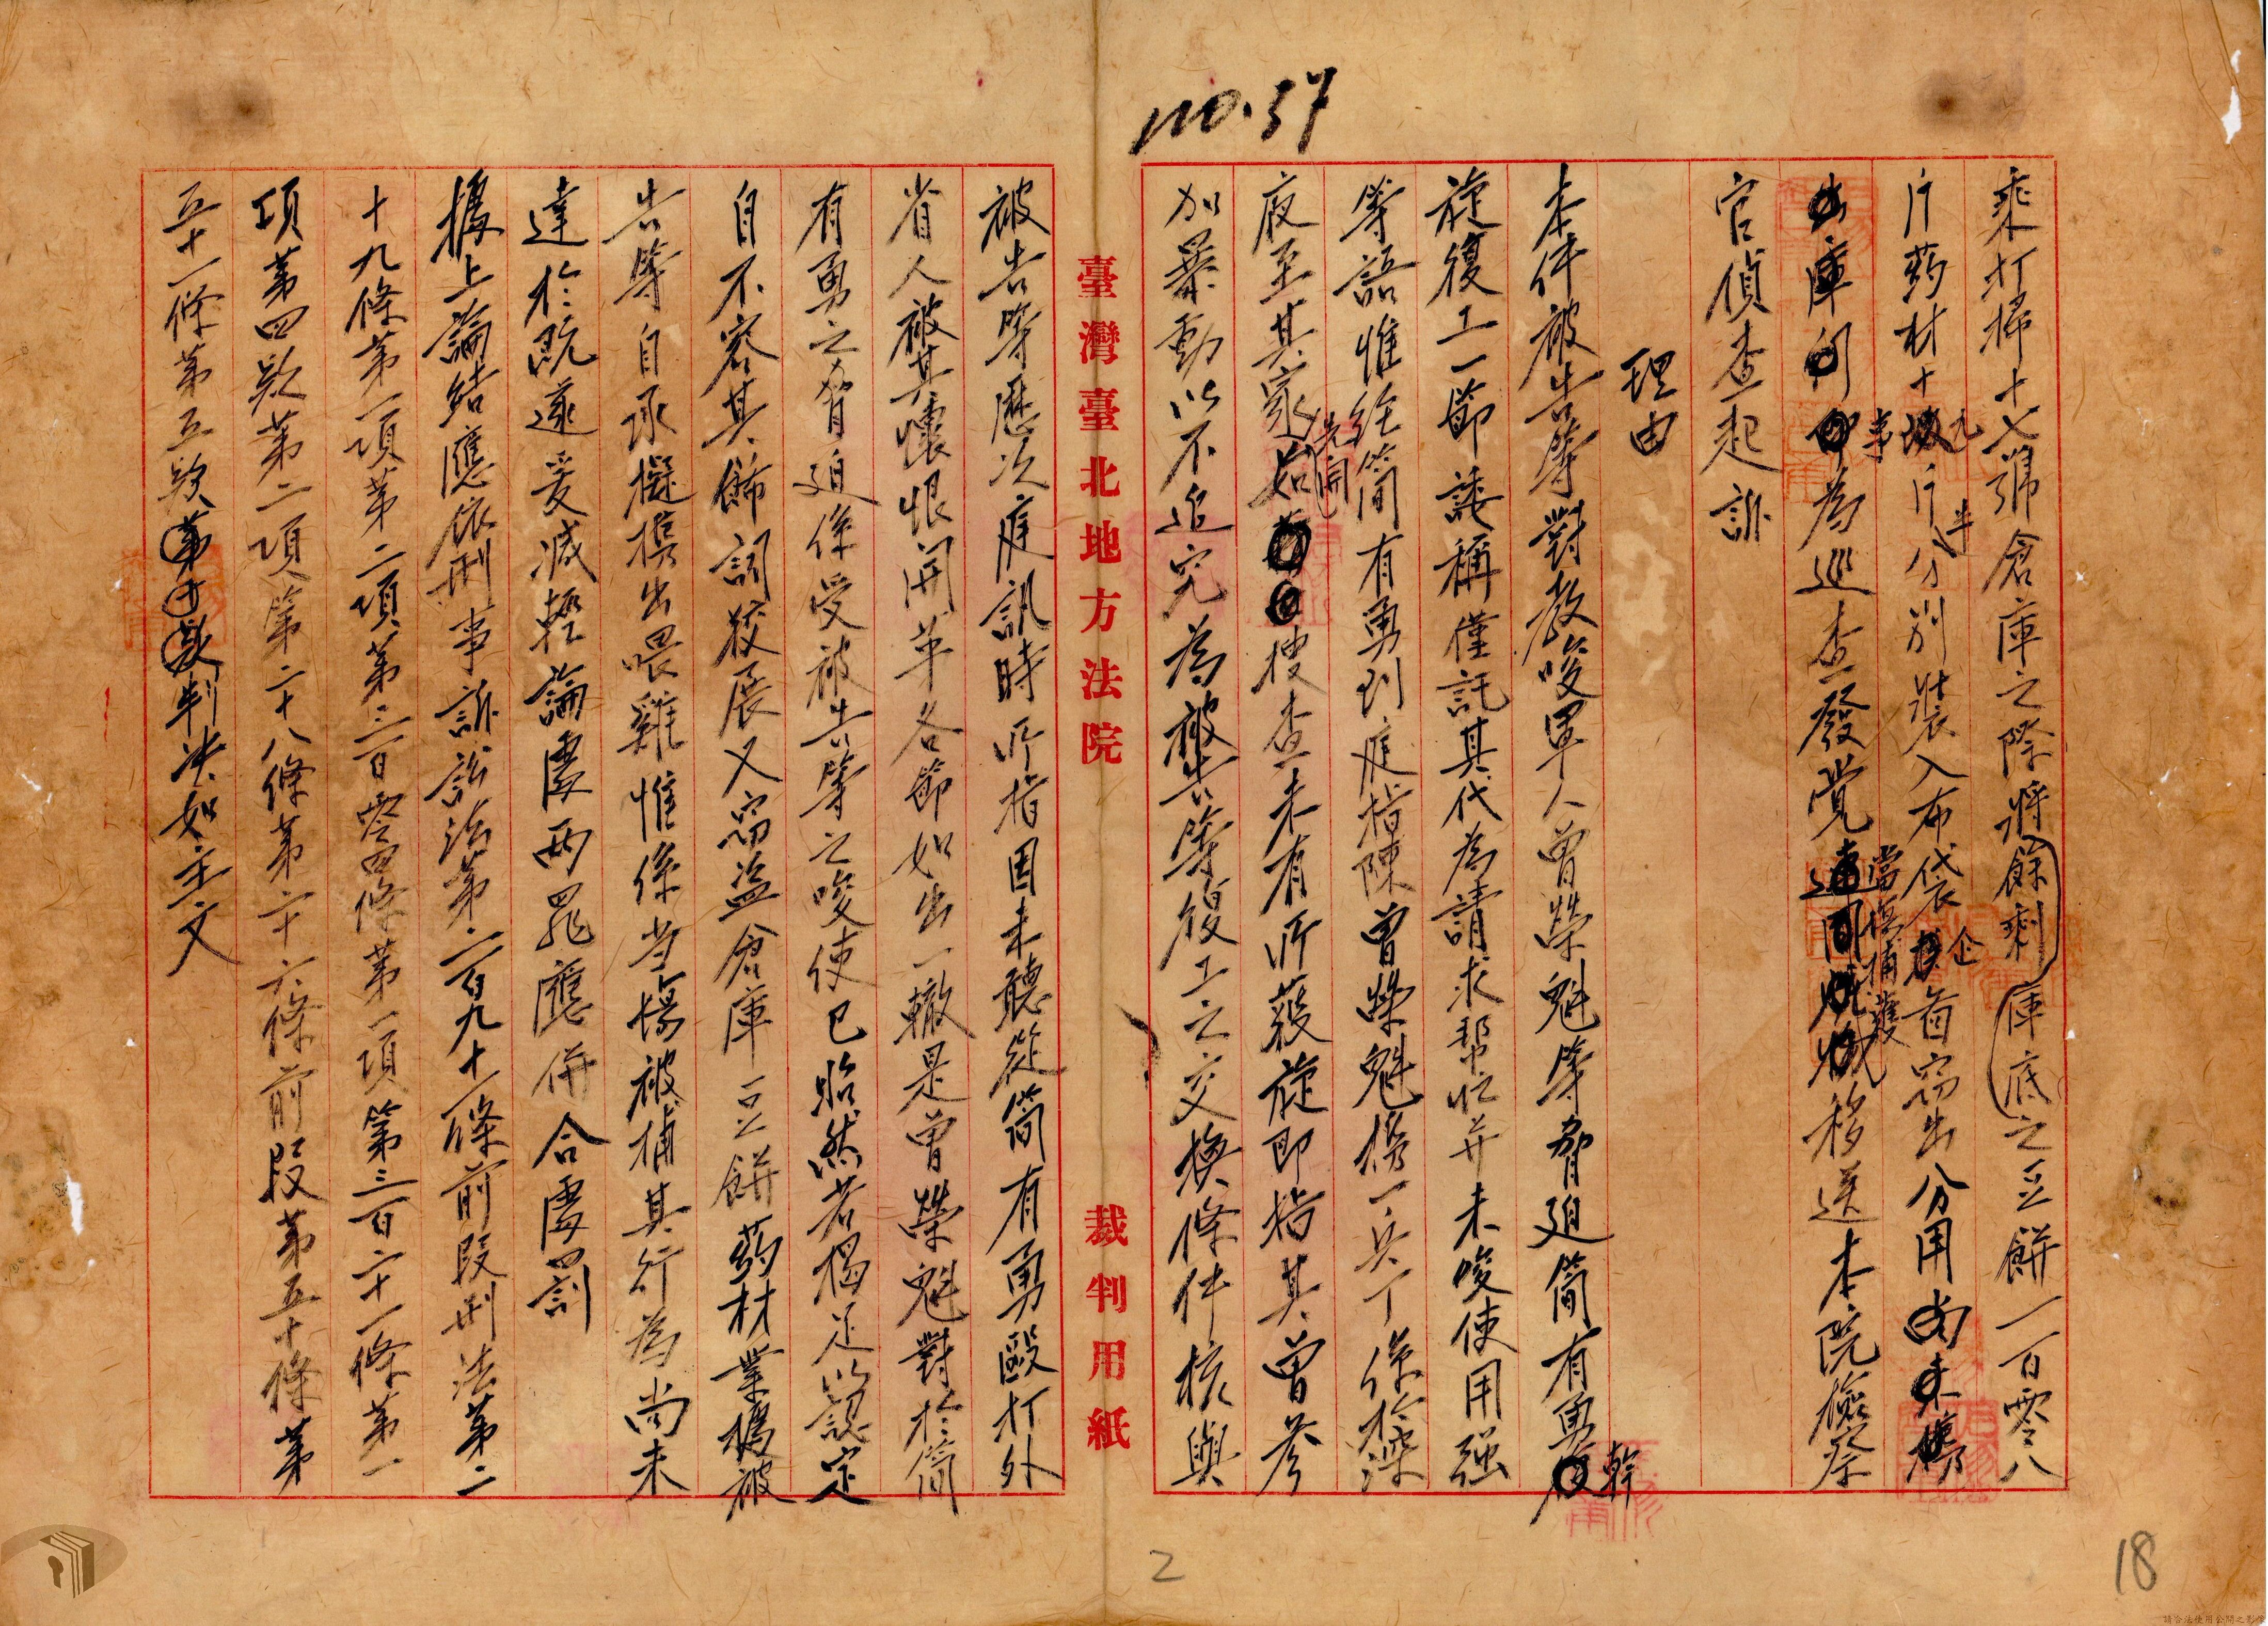 no.37
乘打掃十七號倉庫之際將餘剩庫底之豆餅一百零八
斤葯材十九斤半分別裝入布袋企啚窃出分用
出庫門事為巡查發覚當塲捕護移送本院檢察
官偵查起訴
理由
本件被告等對教唆軍人曾榮魁等脅迫簡有勇幹
旋復工一節諉稱僅託其代為請求帮忙并未唆使用强
等語惟經簡有勇到庭指陳曾榮魁携一兵丁係於深
夜至其家先開搜查未有所获旋即指其曾參
加暴動以不追究為被告等復工之交換條件核與
臺灣臺北地方法院
裁判用紙
被告等歷次庭訊時所指因未聽從簡有勇毆打外
省人被其懷恨開革各節如出一轍是曾榮魁對於簡
有勇之脅迫係受被告等之唆使已昭然若揭足以認定
自不容其飾詞狡展又窃盗倉庫豆餅葯材業據被
告等自承擬携出喂雞惟係当塲被捕其行為尚未
達於既遂爰減輕論處両罪應併合處罰
據上論結應依刑事訴訟法第二百九十一條前段刑法第二
十九條第一項第二項第三百零四條第一項第三百二十一條第一
項第四款第二項第二十八條第二十六條前段第五十條第
五十一條第五款判决如主文
2
18
請合法使用公開之影像